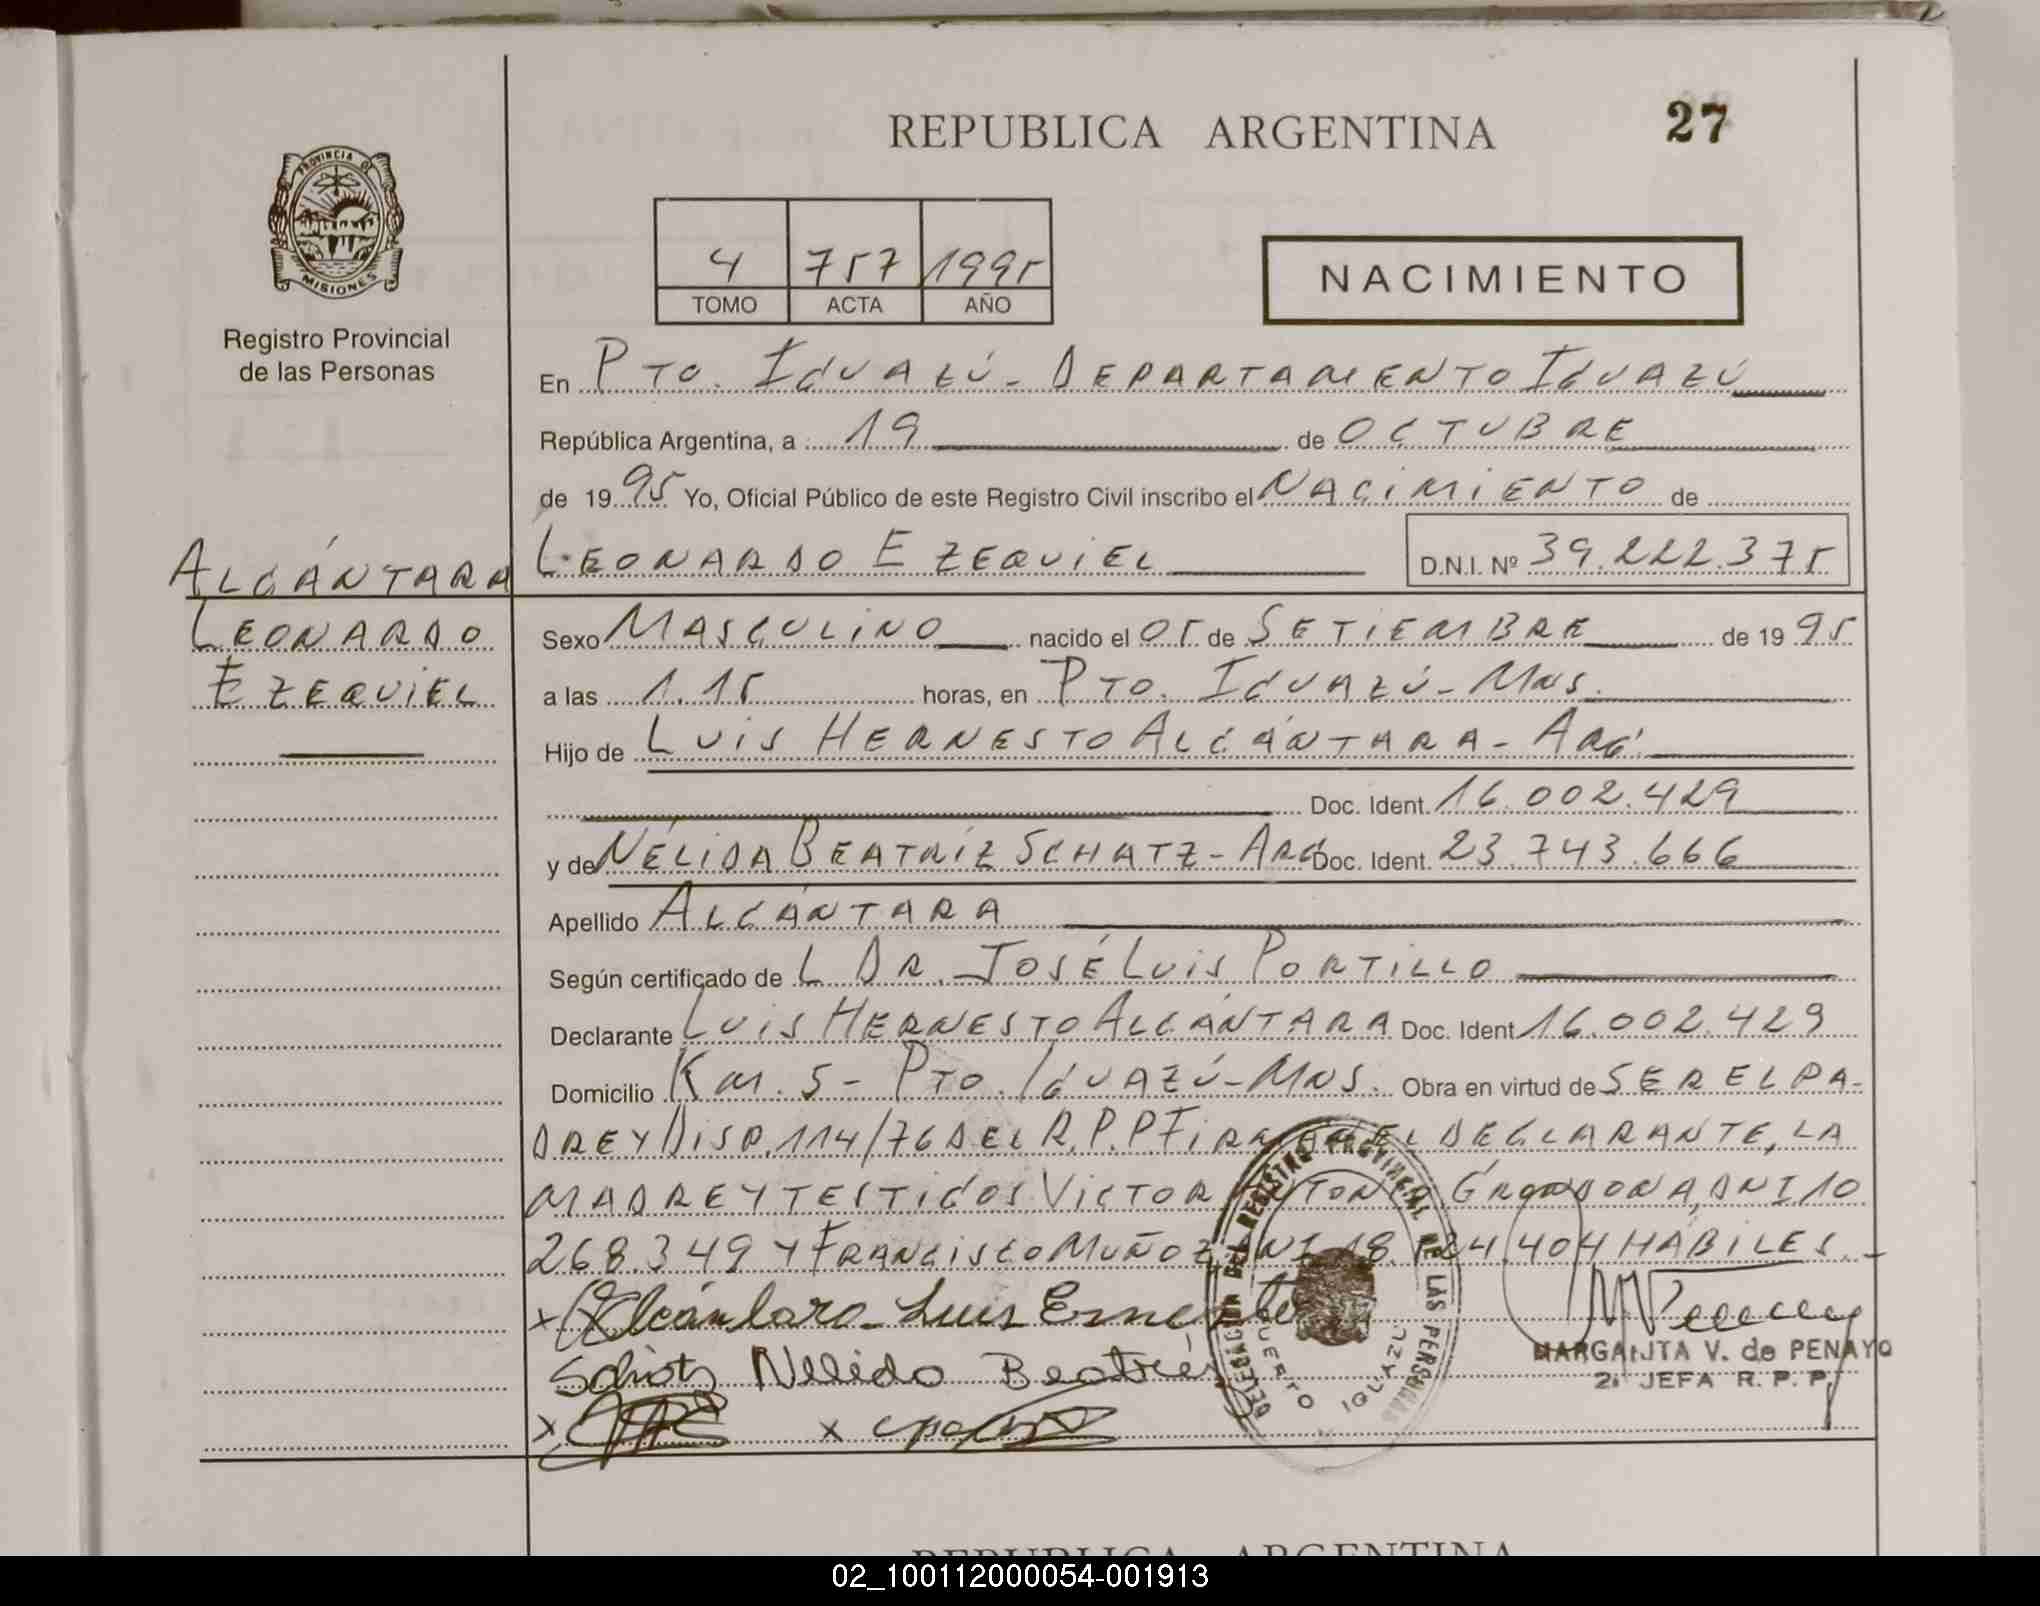 27
REPUBLICA ARGENTINA
PROVINCIA DE
MISIONES
Registro Provincial
de las Personas
4 757 1995
TOMO ACTA AÑO
NACIMIENTO
En PTO. IGUAZÚ - DEPARTAMENTO IGUAZÚ
República Argentina, a 19 de OCTUBRE
de 1995 Yo, Oficial Público de este Registro Civil inscribo el NACIMIENTO de
LEONARDO EZEQUIEL D.N.I. Nº 39.222.375
ALCÁNTARA
LEONARDO
EZEQUIEL
Sexo MASCULINO nacido el 05 de SETIEMBRE de 1995
a las 1.15 horas, en PTO. IGUAZÚ - MNS.
Hijo de LUIS HERNESTO ALCÁNTARA - ARG.
Doc. Ident. 16.002.429
y de NÉLIDA BEATRÍZ SCHATZ - ARG Doc. Ident. 23.743.666
Apellido ALCÁNTARA
Según certificado de L DR. JOSÉ LUIS PORTILLO
Declarante LUIS HERNESTO ALCÁNTARA Doc. Ident 16.002.429
Domicilio KM. 5 - PTO. IGUAZÚ - MNS. Obra en virtud de SER EL PA-
DRE Y DISP. 114/76 DEL R.P.P FIRMAN EL DECLARANTE, LA
MADRE Y TESTIGOS VICTOR ANTONIO GRONDONA, DNI 10
268.349 Y FRANCISCO MUÑOZ DNI 18. 404 HÁBILES. -
x Alcántara Luis Ernesto
Schatz Nelida Beatriz
x x
DELEGACION DEL REGISTRO PROVINCIAL DE LAS PERSONAS
PUERTO IGUAZU
MARGARITA V. de PENAYO
2ª JEFA R. P. P.
REPUBLICA ARGENTINA
02_100112000054-001913